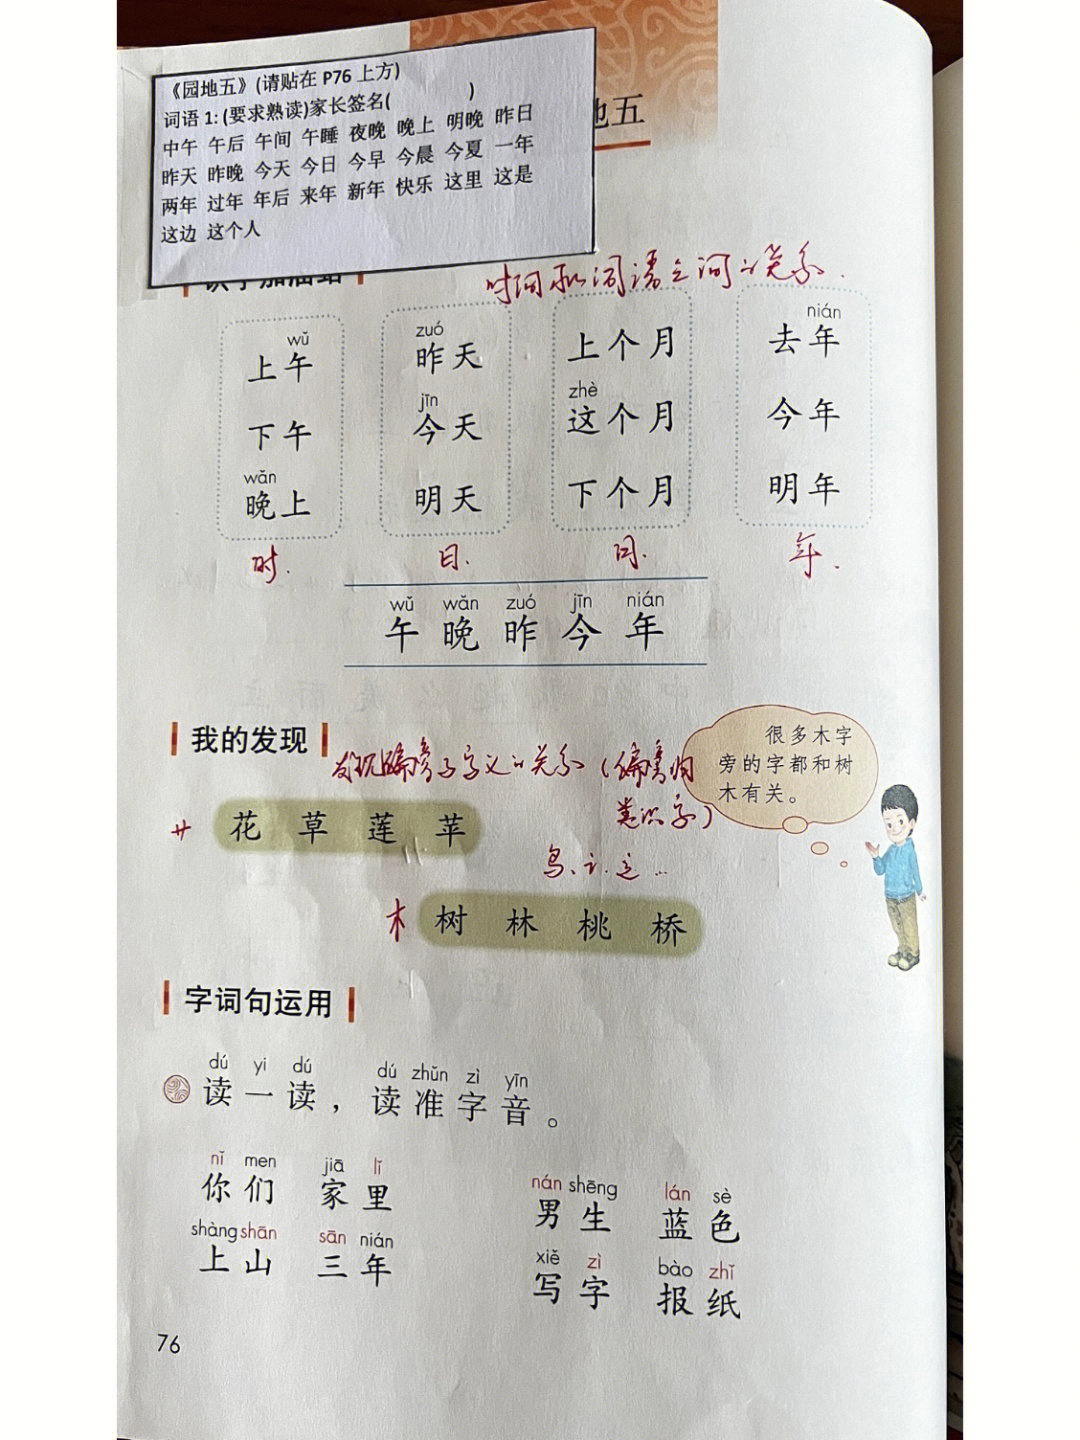 《园地五》(请贴在 P76 上方)
词语 1: (要求熟读)家长签名( )
中午 午后 午间 午睡 夜晚 晚上 明晚 昨日
昨天 昨晚 今天 今日 今早 今晨 今夏 一年
两年 过年 年后 来年 新年 快乐 这里 这是
这边 这个人
地五
识字加油站
时间和词语之间的关系.
wǔ
上午
下午
wǎn
晚上
时.
zuó
昨天
jīn
今天
明天
日.
上个月
zhè
这个月
下个月
月.
nián
去年
今年
明年
年.
wǔ wǎn zuó jīn nián
午 晚 昨 今 年
我的发现
发现偏旁与字义的关系(偏旁归
类识字)
很多木字
旁的字都和树
木有关。
艹 花 草 莲 苹
鸟、讠、辶…
木 树 林 桃 桥
字词句运用
dú yi dú dú zhǔn zì yīn
读一读，读准字音。
nǐ men jiā lǐ
你们 家里
shàng shān sān nián
上山 三年
nán shēng lán sè
男生 蓝色
xiě zì bào zhǐ
写字 报纸
76